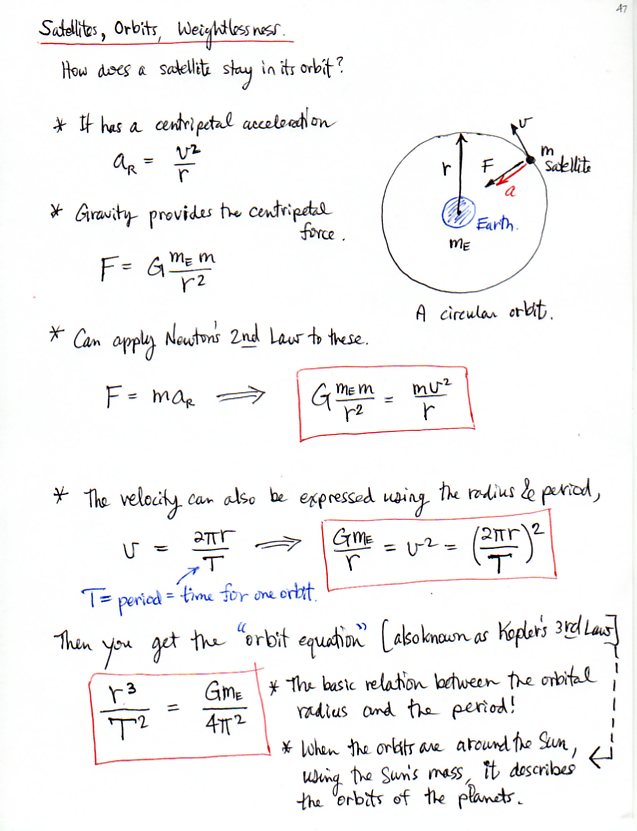 47
Satellites, Orbits, Weightlessness.
How does a satellite stay in its orbit?
* It has a centripetal acceleration
a_R = v²/r
* Gravity provides the centripetal
force.
F = G m_E m / r²
v
m
satellite
r
F
a
Earth.
m_E
A circular orbit.
* Can apply Newton's 2nd Law to these.
F = ma_R ⟹ G m_E m / r² = mv²/r
* The velocity can also be expressed using the radius & period,
v = 2πr/T ⟹ Gm_E/r = v² = (2πr/T)²
T = period = time for one orbit.
Then you get the "orbit equation" [also known as Kepler's 3rd Law]
r³/T² = Gm_E/4π²
* The basic relation between the orbital
radius and the period!
* When the orbits are around the Sun,
using the Sun's mass, it describes
the orbits of the planets.